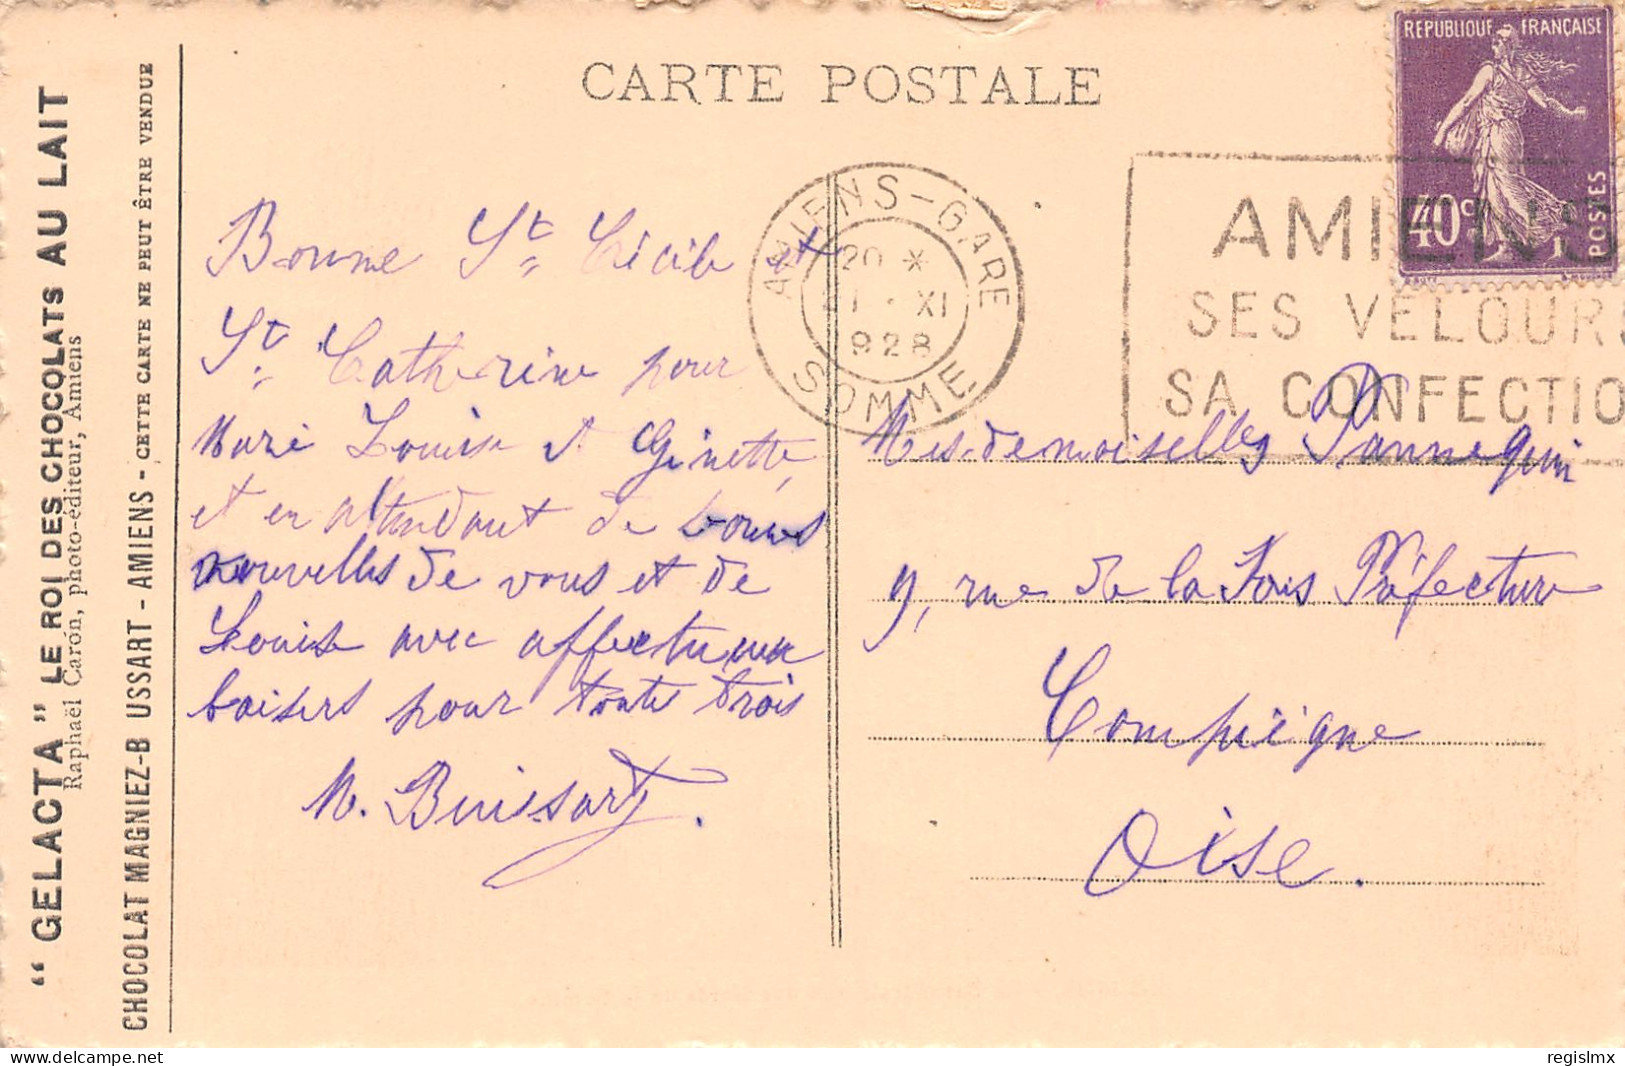 CARTE POSTALE
" GELACTA " LE ROI DES CHOCOLATS AU LAIT
Raphaël Carón, photo-éditeur, Amiens
CHOCOLAT MAGNIEZ-B USSART - AMIENS - CETTE CARTE NE PEUT ÊTRE VENDUE
REPUBLIQUE FRANÇAISE
40c
POSTES
AMIENS-GARE
20 *
21 · XI
928
SOMME
AMIENS
SES VELOURS
SA CONFECTIO
Bonne St Cécile et
St Catherine pour
Marie Louise et Ginette,
et en attendant de bonnes
nouvelles de vous et de
Louise avec affectueux
baisers pour toute trois
M. Buissart.
Mesdemoiselles Pannequin
9, rue de la Sous Préfecture
Compiègne
Oise.
delcampe.net
regislmx